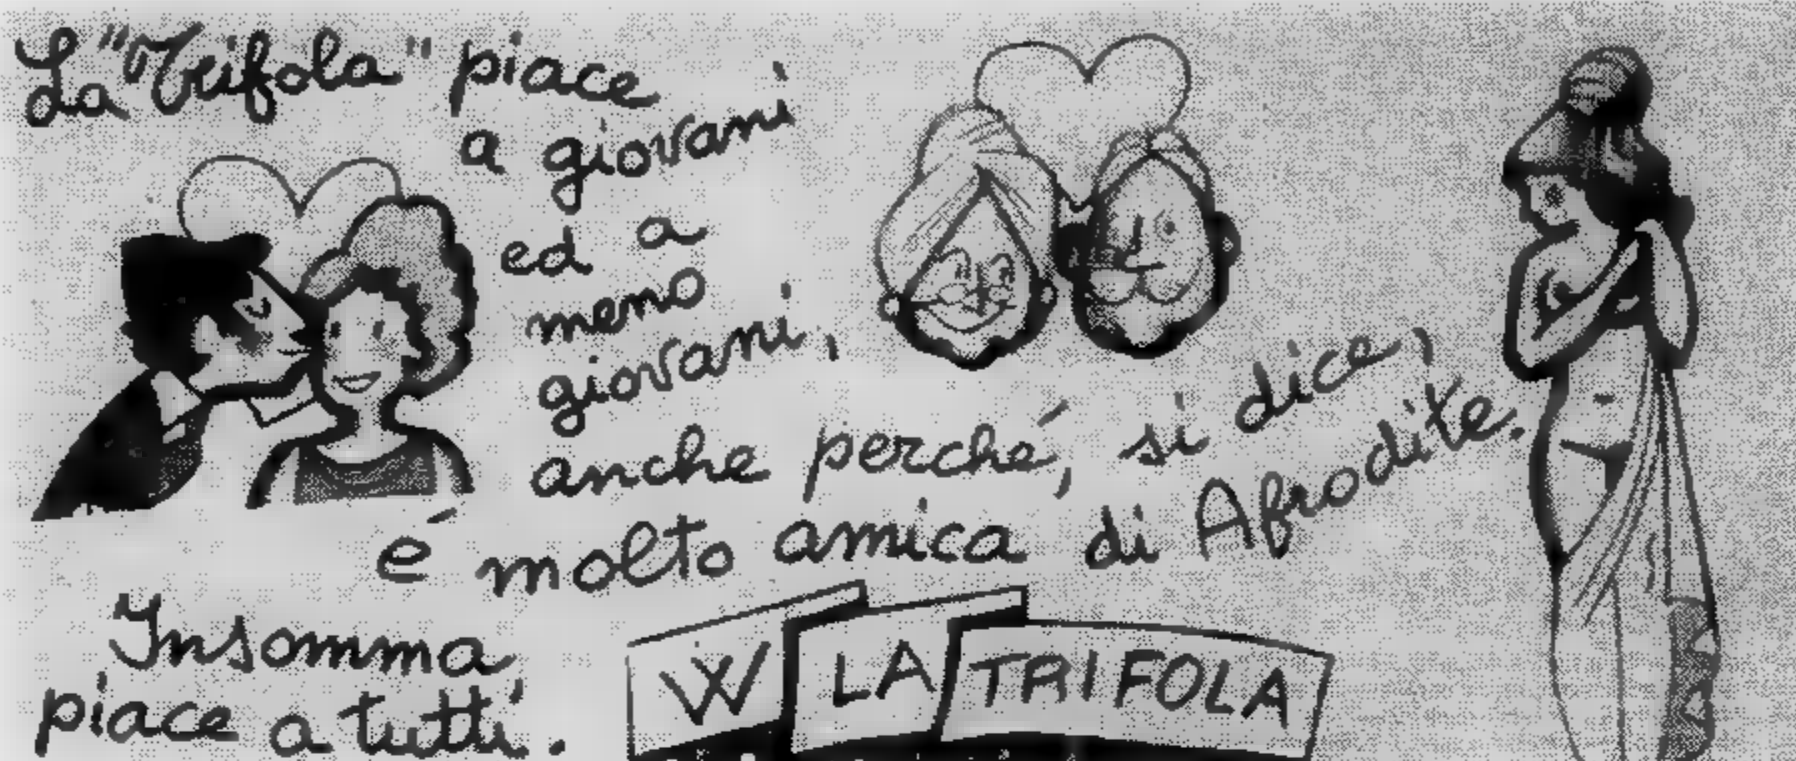 La "Trifola" piace
a giovani
ed a
meno
giovani,
anche perché, si dice,
é molto amica di Afrodite.
Insomma,
piace a tutti.
W LA TRIFOLA